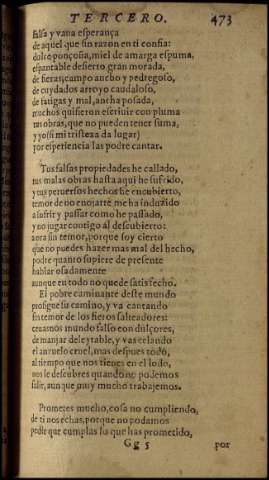 TERCERO. 473
falsa y vana esperança
de aquel que sin razon en ti confia:
dulce ponçoña, miel de amarga espuma,
espantable desierto gran morada,
de fieras, campo ancho y pedregoso,
de cuydados arroyo caudaloso,
de fatigas y mal, ancha posada,
muchos quisieron escriuir con pluma
tus obras, que no pueden tener suma,
y yo (si mi tristeza da lugar)
por esperiencia las podre cantar.
Tus falsas propiedades he callado,
tus malas obras hasta aqui he sufrido,
y tus peruersos hechos he encubierto,
temor de no enojarte me ha induzido
a sufrir y passar como he passado,
y no jugar contigo al descubierto:
aora sin temor, porque soy cierto
que no puedes hazer mas mal del hecho,
podre quanto supiere de presente
hablar osadamente
aunque en todo no quede satisfecho.
El pobre caminante deste mundo
prosigue su camino, y va cantando
sin temor de los fieros salteadores:
ceuamos mundo falso con dulçores,
de manjar deleytable, y vas celando
el anzuelo cruel, mas despues todo,
al tiempo que nos tienes en el lodo,
nos le descubres quando no podemos
salir, aunque muy mucho trabajemos.
Prometes mucho, cosa no cumpliendo,
de ti nos echas, porque no podamos
pedir que cumplas lo que has prometido,
Gg 5 por